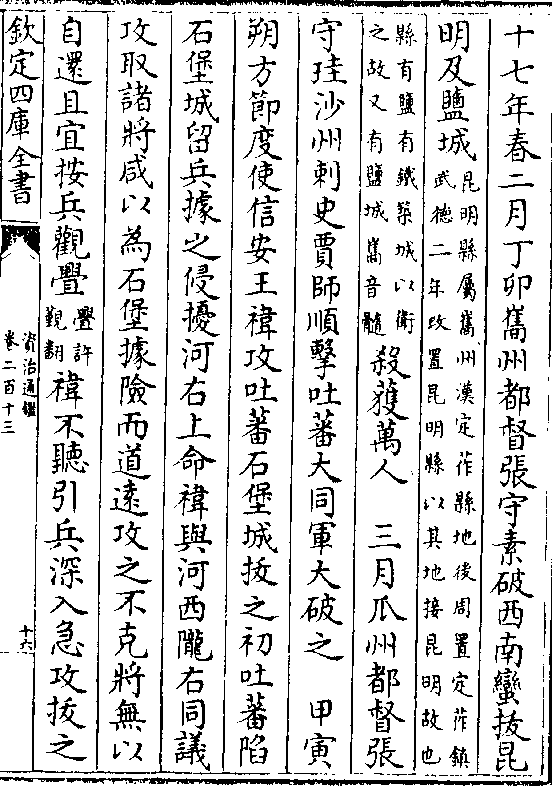 十七年春二月丁卯巂州都督張守素破西南蠻拔昆
明及鹽城昆明縣屬巂州漢定莋縣地後周置定莋鎮
武德二年改置昆明縣以其地接昆明故也
縣有鹽有鐵築城以衛
之故又有鹽城巂音髓殺獲萬人　三月瓜州都督張
守珪沙州刺史賈師順擊吐蕃大同軍大破之　甲寅
朔方節度使信安王禕攻吐蕃石堡城拔之初吐蕃陷
石堡城留兵據之侵擾河右上命禕與河西隴右同議
攻取諸將咸以為石堡據險而道遠攻之不克將無以
自還且宜按兵觀釁釁許
覲翻禕不聽引兵深入急攻拔之
欽定四庫全書
資治通鑑
卷二百十三
十六